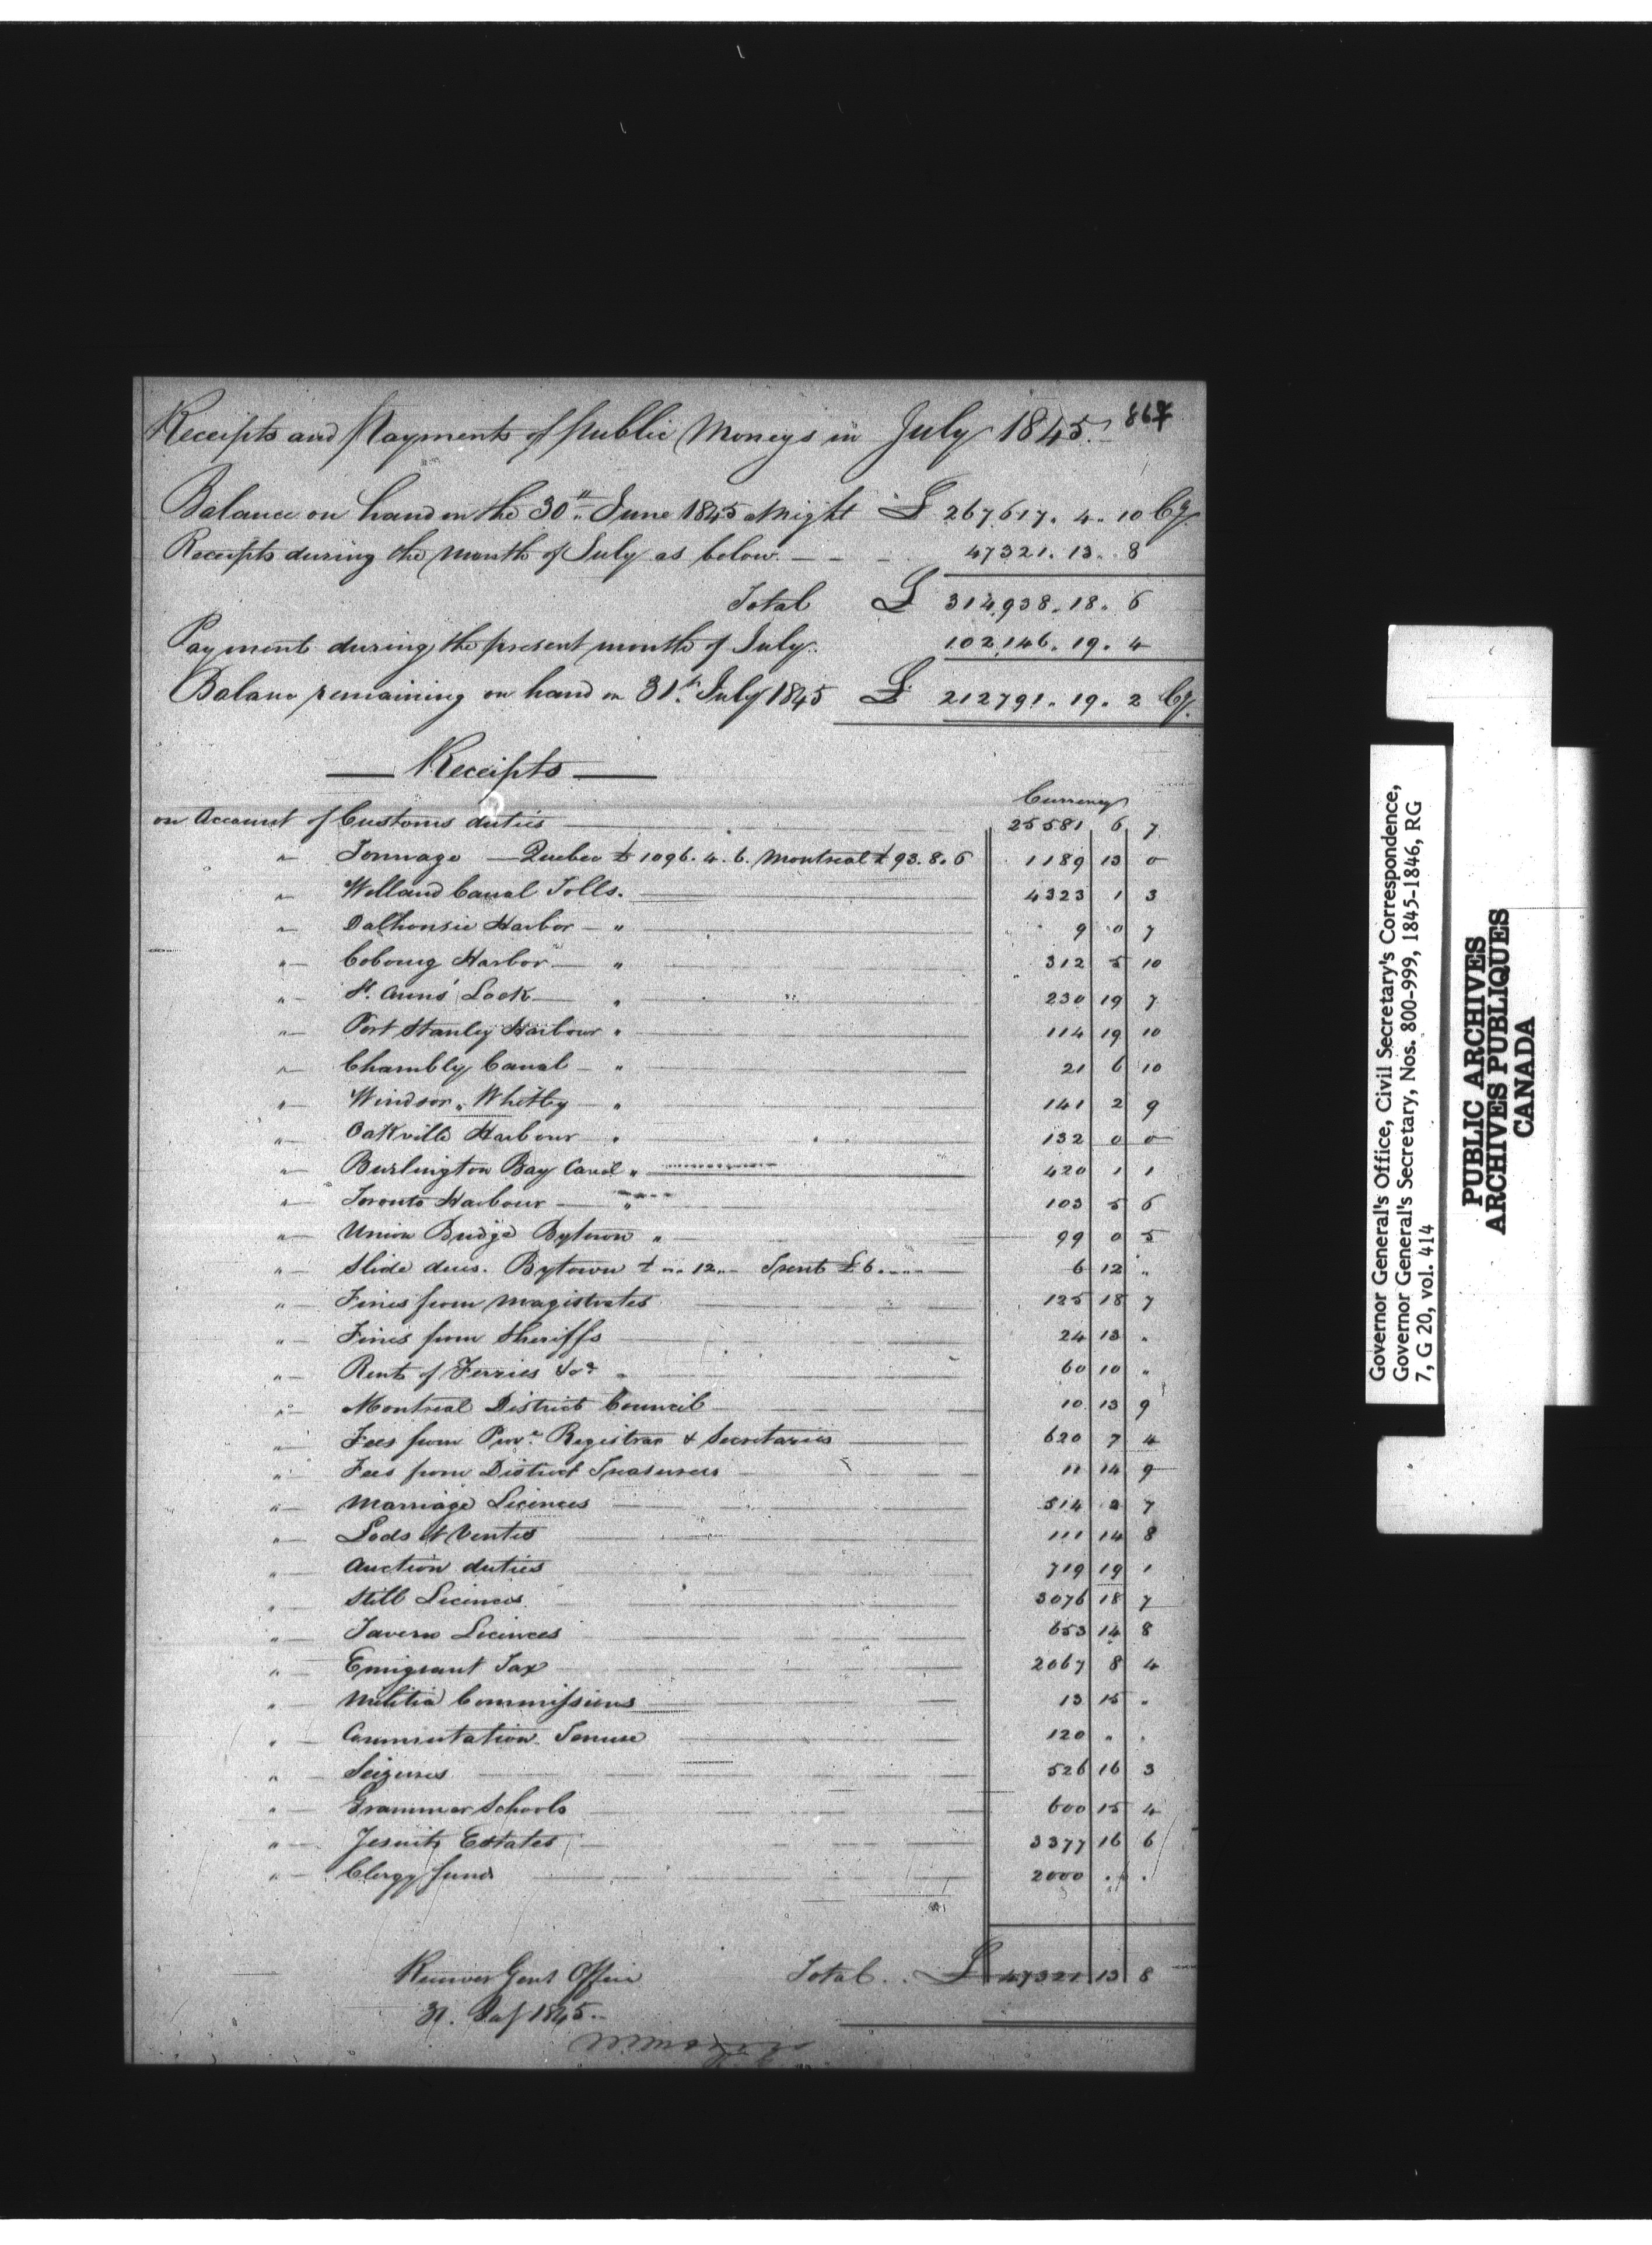 867
Receipts and Payments of public Moneys in July 1845.
Balance on hand on the 30th June 1845 at night £ 267617. 4. 10 Cy
Receipts during the month of July as below 47321. 13. 8
Total £ 314,938. 18. 6
Payment during the present month of July. 102,146. 19. 4
Balance remaining on hand on 31st July 1845 £ 212791. 19. 2 Cy.
Receipts
Currency
on Account of Customs duties 25581 6 7
" Tonnage Quebec £1096. 4. 6. Montreal £93. 8. 6 1189 13 0
" Welland Canal Tolls. 4323 1 3
" Dalhousie Harbor " 9 0 7
" Cobourg Harbor " 312 5 10
" St. Anns' Lock " 230 19 7
" Port Stanley Harbour " 114 19 10
" Chambly Canal " 21 6 10
" Windsor " Whitby " 141 2 9
" Oakville Harbour " 132 0 0
" Burlington Bay Canal " 420 1 1
" Toronto Harbour " 103 5 6
" Union Bridge Bytown " 99 0 5
" Slide dues. Bytown £ ". 12. " Trent £6. " . " 6 12 "
" Fines from Magistrates 125 18 7
" Fines from Sheriffs 24 13 "
" Rent of Ferries &ca 60 10 "
" Montreal District Council 10 13 9
" Fees from Prov. Registrar & Secretaries 620 7 4
" Fees from District Treasurers 11 14 9
" Marriage Licences 514 2 7
" Lods et Ventes 111 14 8
" Auction duties 719 19 1
" Still Licences 3076 18 7
" Tavern Licences 653 14 8
" Emigrant Tax 2067 8 4
" Militia Commissions 13 15 "
" Commutation Tenure 120 " "
" Seizures 526 16 3
" Grammar Schools 600 15 4
" Jesuits Estates 3377 16 6
" Clergy fund 2000 . .
Receiver Genl Office Total £ 47321 13 8
31. July 1845.
Governor General's Office, Civil Secretary's Correspondence,
Governor General's Secretary, Nos. 800-999, 1845-1846, RG
7, G 20, vol. 414
PUBLIC ARCHIVES
ARCHIVES PUBLIQUES
CANADA